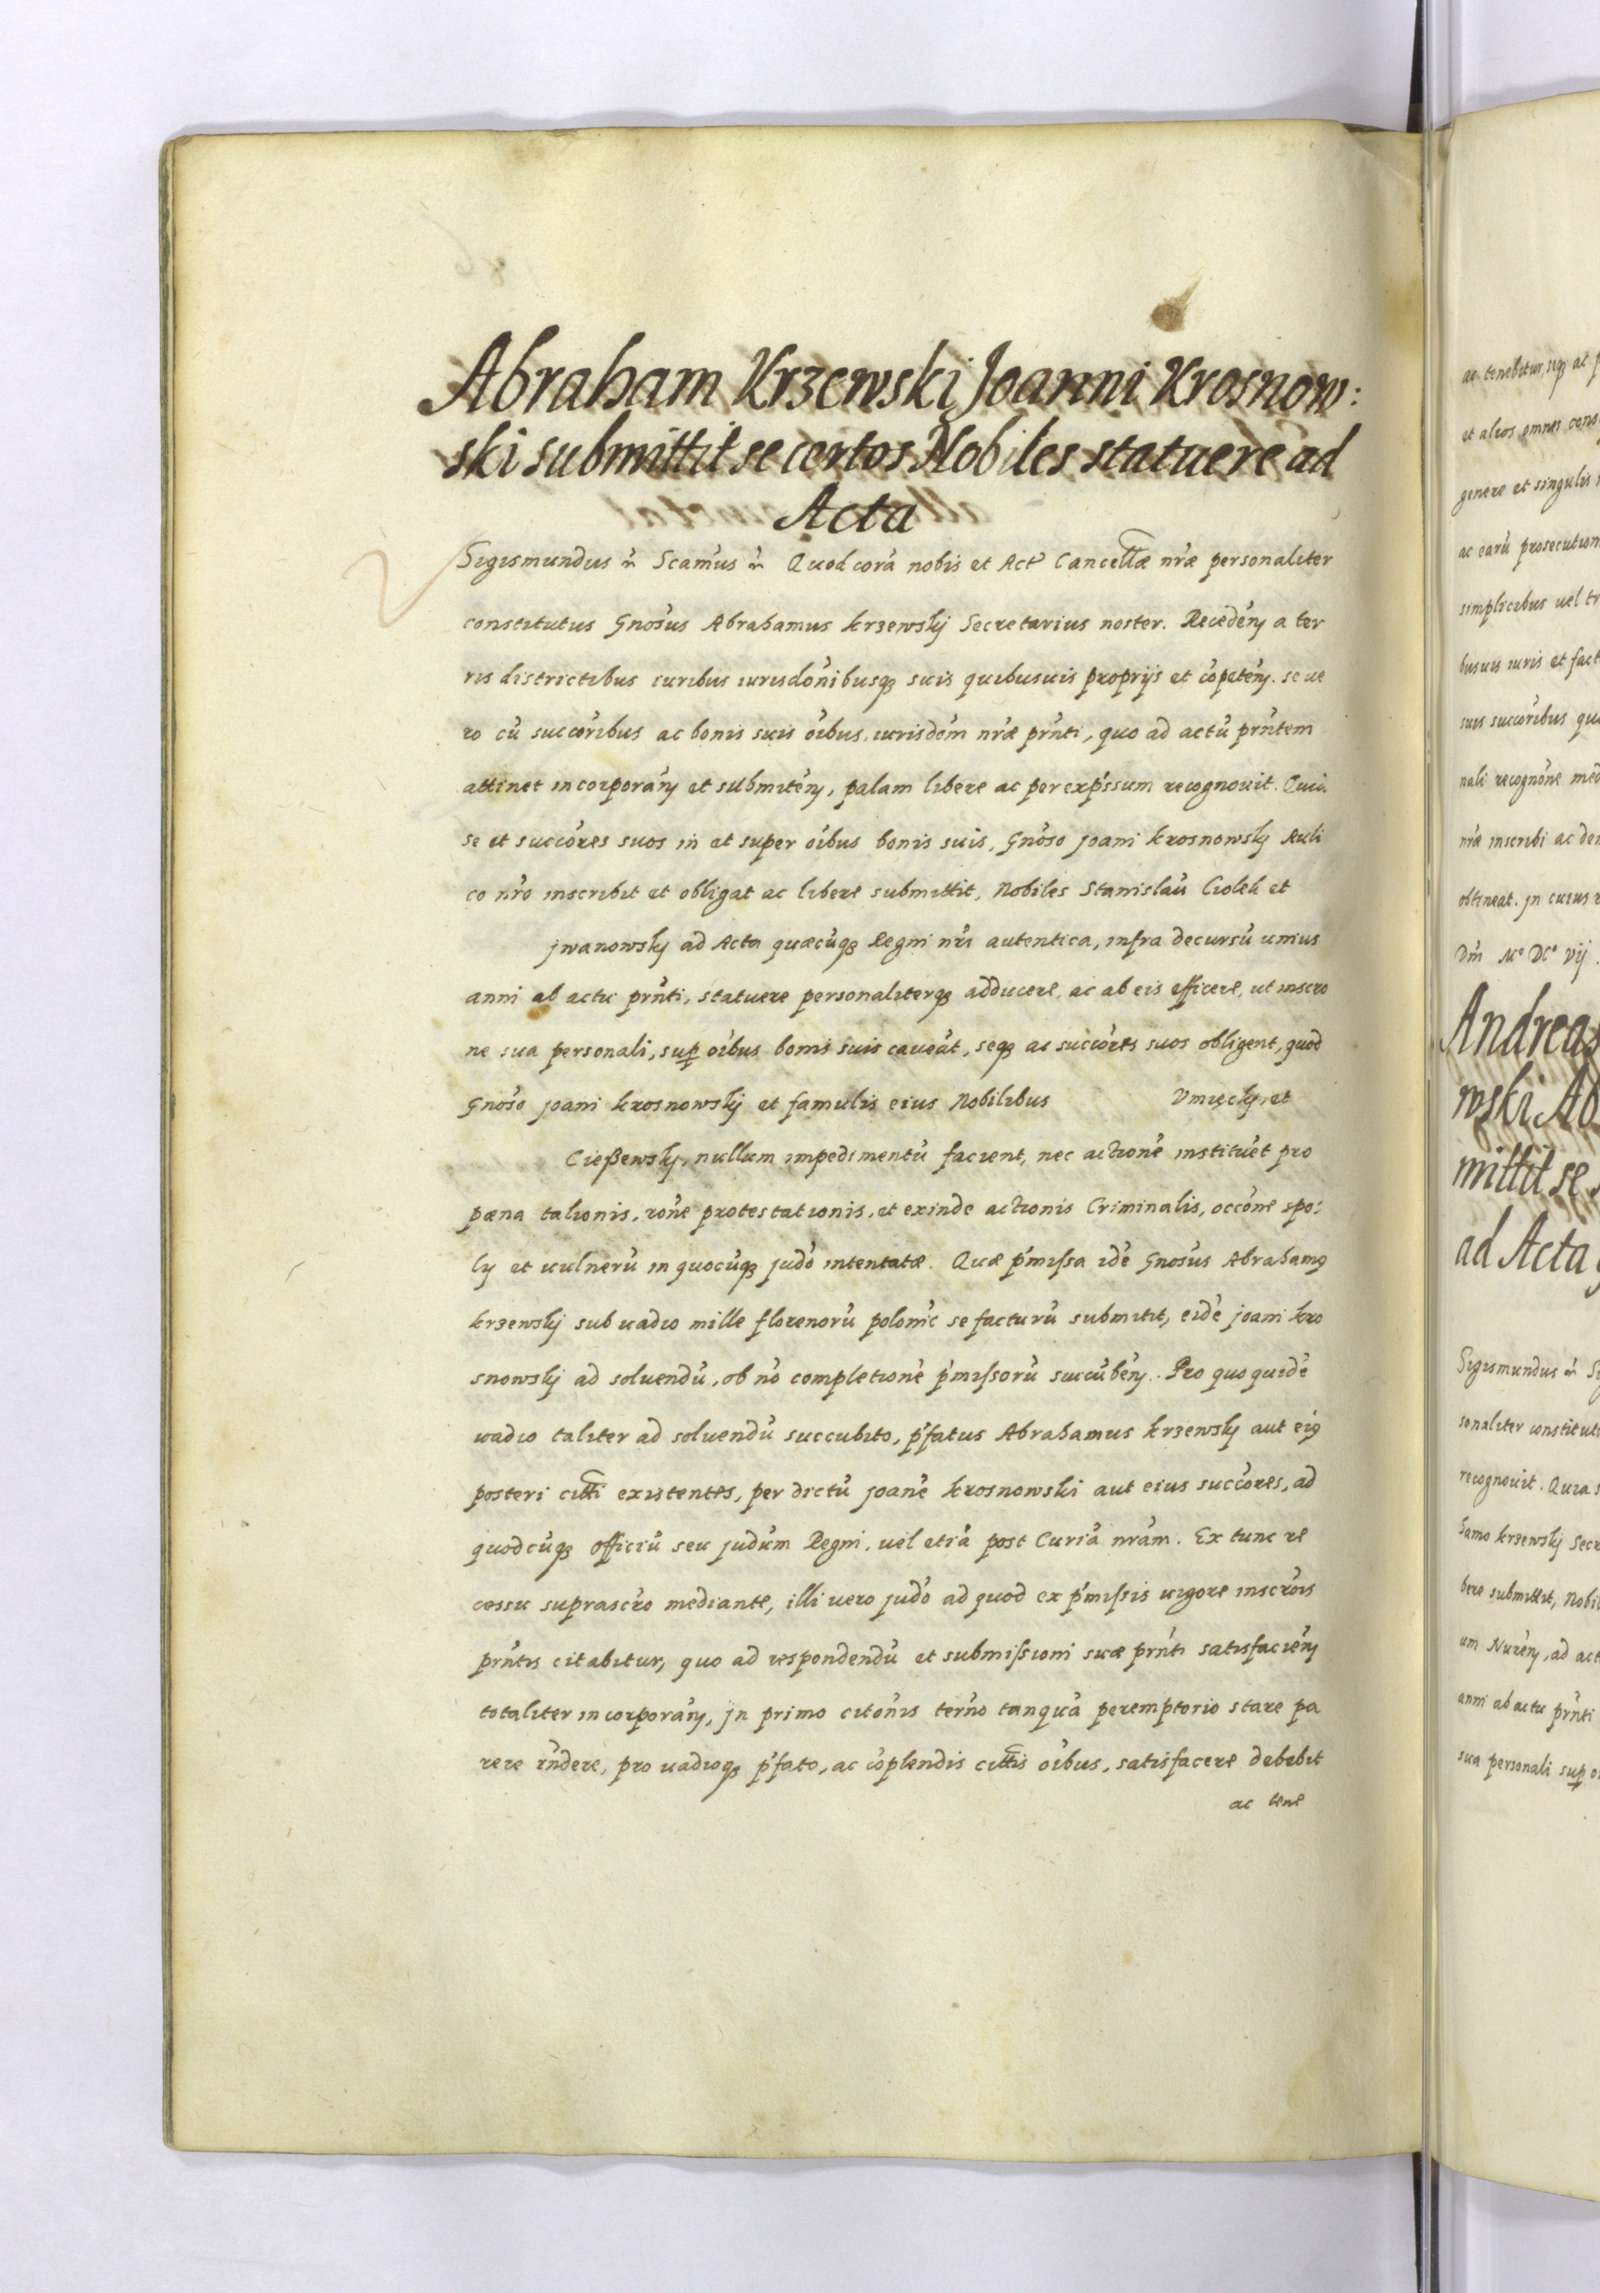 Abraham Krzewski Joanni Krosnow:
ski submittit se certos Nobiles statuere ad
Acta
Sigismundus etc Scamus etc Quod corā nobis et Act Cancellæ nræ personaliter
constitutus Gnosus Abrahamus Krzewskÿ Secretarius noster. Recedeń a ter
ris districtibus iuribus iurisdonibusqꝫ suis quibusuis proprijs et cōpeteń. se ve
ro cū succoribus ac bonis suis oibus, iurisdom nræ prnti, quo ad actū prntem
attinet incorporań et submiteń, palam libere ac per exprssum recognovit. Quia
se et succores suos in et super oibus bonis suis, Gnoso Joani Krosnowskÿ Auli
co nro inscribit et obligat ac libere submittit, Nobiles Stanislaū Ciolek et
Jwanowskÿ ad Acta quæcūqꝫ Regni nri autentica, infra decursū unius
anni ab actu prnti, statuere personaliterqꝫ adducere, ac ab eis efficere, ut inscro
ne sua personali, suꝑ oibus bonis suis caveāt, seqꝫ ac succores suos obligent, quod
Gnoso Joani Krosnowskÿ et famulis eius Nobilibus Vmięckÿ, et
Cießewskÿ, nullum impedimentū facient, nec actionē instituēt pro
pæna talionis, rone protestationis, et exinde actionis Criminalis, occone spo:
lÿ et vulnerū in quocūqꝫ judo intentatæ. Quæ pmissa idē Gnosus Abrahamꝰ
Krzewskÿ sub vadio mille florenorū polonic se facturū submitit, eidē Joani Kro
snowskÿ ad solvendū, ob nō completionē pmissorū succūbeń. Pro quo quidē
vadio taliter ad solvendū succubito, pfatus Abrahamus Krzewskÿ aut eiꝰ
posteri citti existentes, per dictū Joanē Krosnowski aut eius succores, ad
quodcūqꝫ officiū seu judum Regni, vel etiā post Curiā nram. Ex tunc re
cessu suprascro mediante, illi vero judo ad quod ex pmissis vigore inscrois
prntis citabitur, quo ad respondendū et submissioni suæ prnti satisfacień
totaliter incorporań, Jn primo citonis terno tanquā peremptorio stare pa
rere rndere, pro vadioqꝫ pfato, ac cōplendis cittis oibus, satisfacere debebit
ac tene
ac tenebitur, seqꝫ ac
et alios omnes
genere et singulis
ac earū prosecution
simplicibus vel
busuis iuris et fact
suis succoribus
nali recognone med
nra inscribi ac
obtineat. Jn cuius
Dni Mº DCº vij.
Andreas
wski Ab
mittit se
ad Acta
Sigismundus etc
sonaliter constitut
recognovit. Quia
Krzewskÿ Secr
bere submittit, Nobil
um Nureń, ad act
anni ab actu prnti
sua personali suꝑ